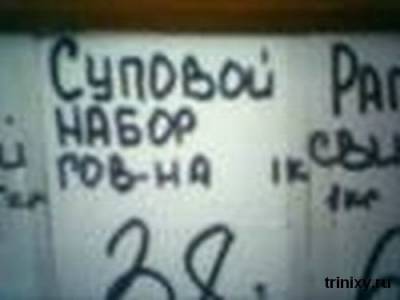 Суповой
НАБОР
ГОВ-НА 1К
38.
РАГ
СВИ
1кг
trinixy.ru